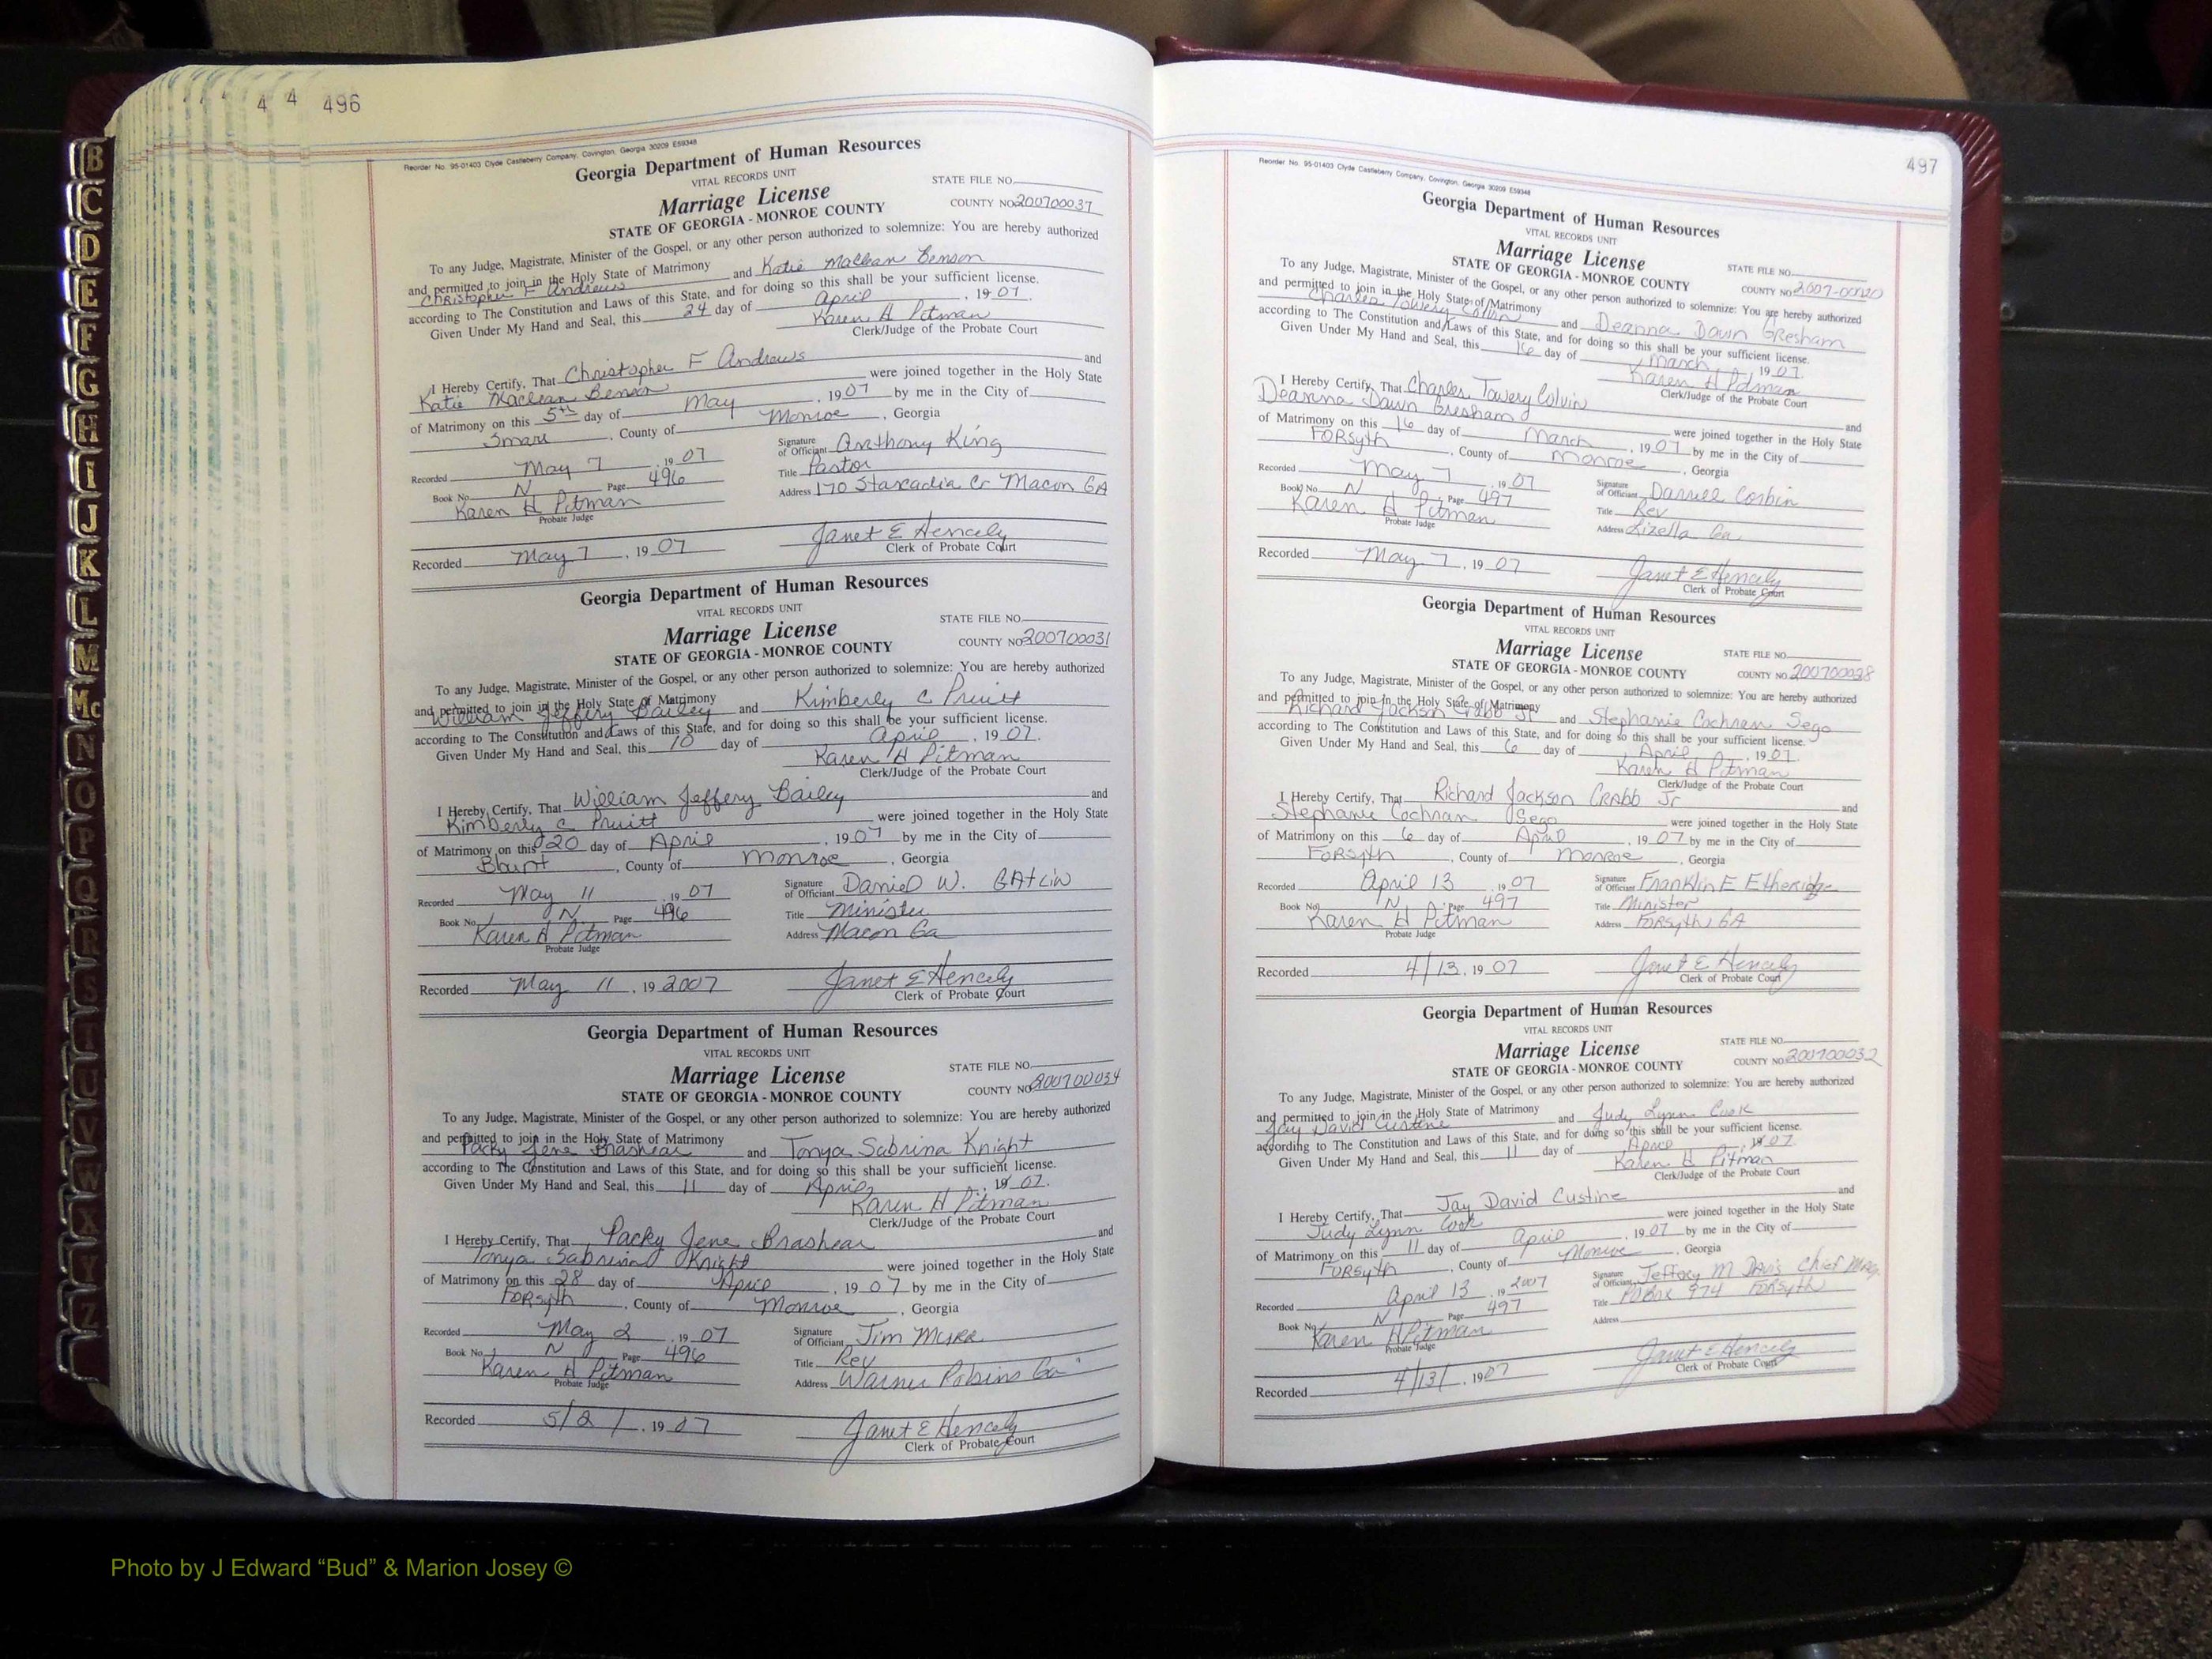 B
C
D
E
F
G
H
I
J
K
L
M
Mc
N
O
P
Q
R
S
T
U
V
W
X
Y
Z
4 4 496
Reorder No. 95-01403 Clyde Castleberry Company, Covington, Georgia 30209 E59348
Georgia Department of Human Resources
VITAL RECORDS UNIT
STATE FILE NO.
Marriage License
COUNTY NO 200700037
STATE OF GEORGIA - MONROE COUNTY
To any Judge, Magistrate, Minister of the Gospel, or any other person authorized to solemnize: You are hereby authorized
and permitted to join in the Holy State of Matrimony
Christopher F Andrews and Katie Maclean Benson
according to The Constitution and Laws of this State, and for doing so this shall be your sufficient license.
Given Under My Hand and Seal, this 24 day of April, 19 07.
Karen H Pitman
Clerk/Judge of the Probate Court
I Hereby Certify, That Christopher F Andrews and
Katie Maclean Benson were joined together in the Holy State
of Matrimony on this 5th day of May, 19 07 by me in the City of
Smarr, County of Monroe, Georgia
Recorded May 7, 19 07 Signature of Officiant Anthony King
Book No. N Page 496 Title Pastor
Karen H Pitman Address 170 Starcadia Cr Macon GA
Probate Judge
Recorded May 7, 19 07 Janet E Hencely
Clerk of Probate Court
Georgia Department of Human Resources
VITAL RECORDS UNIT
STATE FILE NO.
Marriage License
COUNTY NO 200700031
STATE OF GEORGIA - MONROE COUNTY
To any Judge, Magistrate, Minister of the Gospel, or any other person authorized to solemnize: You are hereby authorized
and permitted to join in the Holy State of Matrimony
William Jeffery Bailey and Kimberly C Pruitt
according to The Constitution and Laws of this State, and for doing so this shall be your sufficient license.
Given Under My Hand and Seal, this 10 day of April, 19 07.
Karen H Pitman
Clerk/Judge of the Probate Court
I Hereby Certify, That William Jeffery Bailey and
Kimberly C Pruitt were joined together in the Holy State
of Matrimony on this 20 day of April, 19 07 by me in the City of
, County of Monroe, Georgia
Recorded May 11 19 07 Signature of Officiant Daniel W. GAtLiN
Book No. N Page 496 Title Minister
Karen H Pitman Address Macon Ga
Probate Judge
Recorded May 11, 19 2007 Janet E Hencely
Clerk of Probate Court
Georgia Department of Human Resources
VITAL RECORDS UNIT
STATE FILE NO.
Marriage License
COUNTY NO 200700034
STATE OF GEORGIA - MONROE COUNTY
To any Judge, Magistrate, Minister of the Gospel, or any other person authorized to solemnize: You are hereby authorized
and permitted to join in the Holy State of Matrimony
Packy Jene Brashear and Tonya Sabrina Knight
according to The Constitution and Laws of this State, and for doing so this shall be your sufficient license.
Given Under My Hand and Seal, this 11 day of April, 19 07.
Karen H Pitman
Clerk/Judge of the Probate Court
I Hereby Certify, That Packy Jene Brashear and
Tonya Sabrina Knight were joined together in the Holy State
of Matrimony on this 28 day of April, 19 07 by me in the City of
FORSYTH, County of Monroe, Georgia
Recorded May 2, 19 07 Signature of Officiant Jim
Book No. N Page 496 Title Rev
Karen H Pitman Address Warner Robins Ga
Probate Judge
Recorded 5/2/, 19 07 Janet E Hencely
Clerk of Probate Court
497
Reorder No. 95-01403 Clyde Castleberry Company, Covington, Georgia 30209 E59348
Georgia Department of Human Resources
VITAL RECORDS UNIT
Marriage License
STATE FILE NO.
STATE OF GEORGIA - MONROE COUNTY
COUNTY NO 2007-00020
To any Judge, Magistrate, Minister of the Gospel, or any other person authorized to solemnize: You are hereby authorized
and permitted to join in the Holy State of Matrimony
Charles Towery Colvin and Deanna Dawn Gresham
according to The Constitution and Laws of this State, and for doing so this shall be your sufficient license.
Given Under My Hand and Seal, this 16 day of March, 19 07.
Karen H Pitman
Clerk/Judge of the Probate Court
I Hereby Certify, That Charles Towery Colvin and
Deanna Dawn Gresham were joined together in the Holy State
of Matrimony on this 16 day of March, 19 07 by me in the City of
FORSYTH, County of Monroe, Georgia
Recorded May 7, 19 07 Signature of Officiant Darrell Corbin
Book No N Page 497 Title Rev
Karen H Pitman Address Lizella Ga
Probate Judge
Recorded May 7, 19 07 Janet E Hencely
Clerk of Probate Court
Georgia Department of Human Resources
VITAL RECORDS UNIT
Marriage License
STATE FILE NO.
STATE OF GEORGIA - MONROE COUNTY
COUNTY NO. 200700028
To any Judge, Magistrate, Minister of the Gospel, or any other person authorized to solemnize: You are hereby authorized
and permitted to join in the Holy State of Matrimony
Richard Jackson Crabb Jr and Stephanie Cochran Sego
according to The Constitution and Laws of this State, and for doing so this shall be your sufficient license.
Given Under My Hand and Seal, this 6 day of April, 19 07.
Karen H Pitman
Clerk/Judge of the Probate Court
I Hereby Certify, That Richard Jackson CRAbb Jr and
Stephanie Cochran Sego were joined together in the Holy State
of Matrimony on this 6 day of April, 19 07 by me in the City of
FORSYTH, County of Monroe, Georgia
Recorded April 13, 19 07 Signature of Officiant Franklin E Etheridge
Book No N Page 497 Title Minister
Karen H Pitman Address FORSyth GA
Probate Judge
Recorded 4/13, 19 07 Janet E Hencely
Clerk of Probate Court
Georgia Department of Human Resources
VITAL RECORDS UNIT
Marriage License
STATE FILE NO.
STATE OF GEORGIA - MONROE COUNTY
COUNTY NO. 200700032
To any Judge, Magistrate, Minister of the Gospel, or any other person authorized to solemnize: You are hereby authorized
and permitted to join in the Holy State of Matrimony
Jay David Custine and Judy Lynn Cook
according to The Constitution and Laws of this State, and for doing so this shall be your sufficient license.
Given Under My Hand and Seal, this 11 day of April, 19 07.
Karen H Pitman
Clerk/Judge of the Probate Court
I Hereby Certify, That Jay David Custine and
Judy Lynn Cook were joined together in the Holy State
of Matrimony on this 11 day of April, 19 07 by me in the City of
FORSYTH, County of Monroe, Georgia
Recorded April 13, 19 2007 Signature of Officiant Jeffory M Davis Chief Mag
Book No. N Page 497 Title PO Box 974 FORSyth
Karen H Pitman Address
Probate Judge
Recorded 4/13/, 19 07 Janet E Hencely
Clerk of Probate Court
Photo by J Edward “Bud” & Marion Josey ©